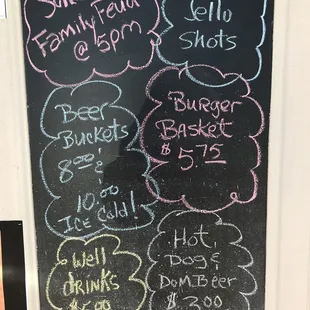 Family Feud
@ 5pm
Jello
Shots
Beer
Buckets
8.00 &
10.00
Ice Cold!
Burger
Basket
$5.75
Well
drinks
Hot
Dog &
Dom Beer
$3.00